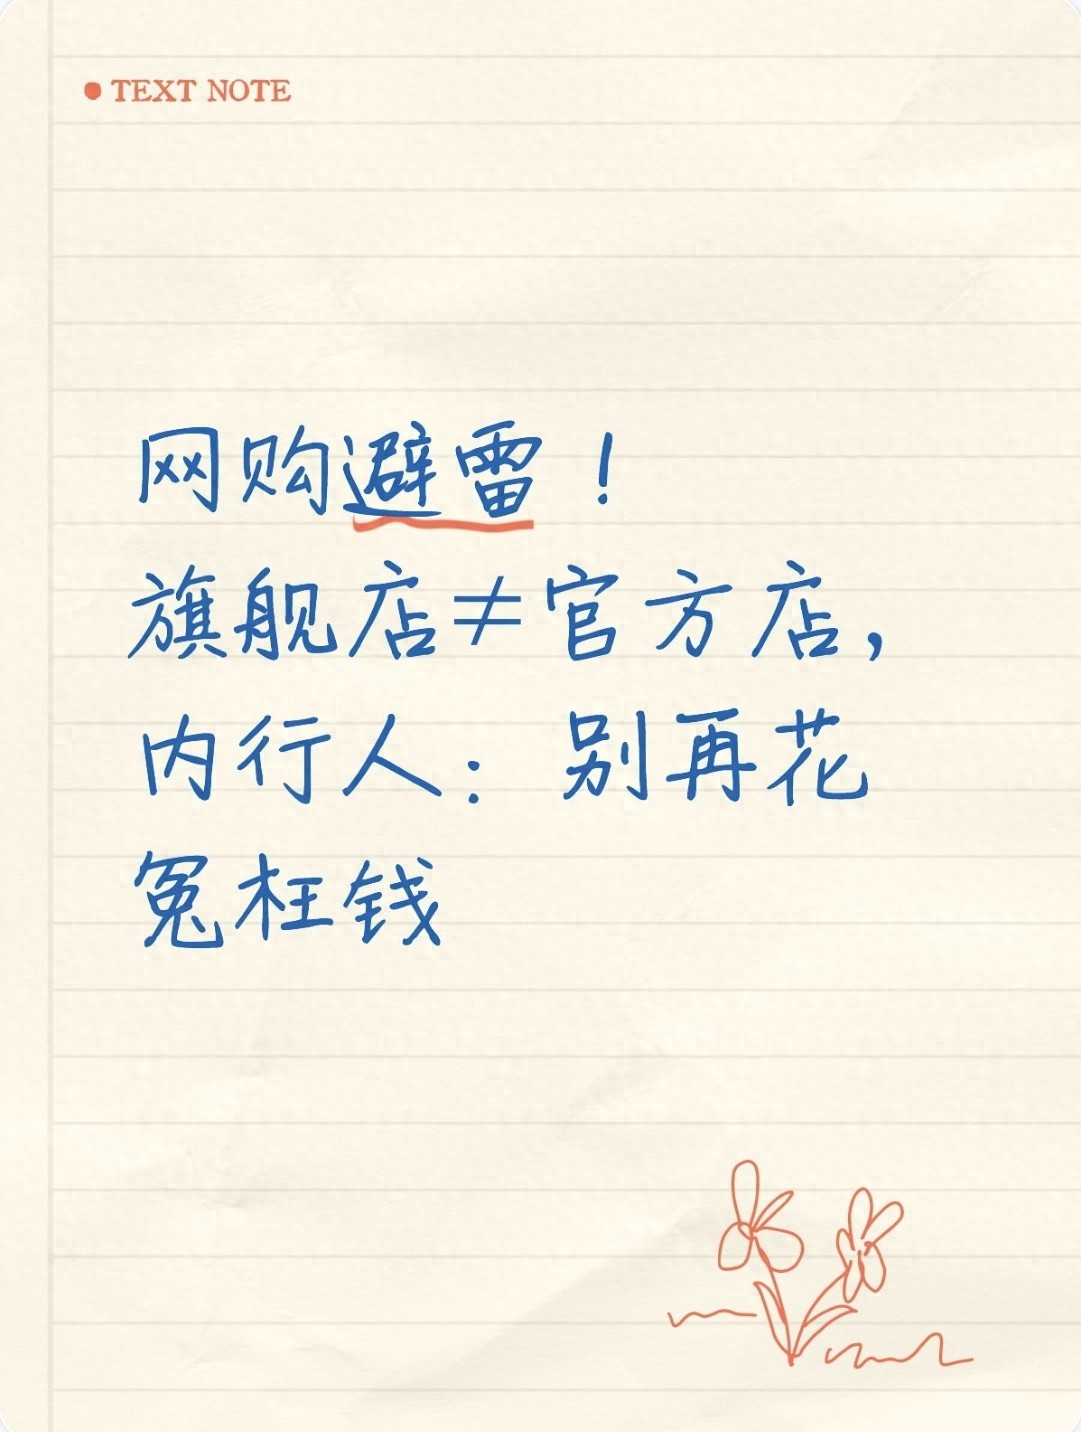 TEXT NOTE
网购避雷！
旗舰店≠官方店，
内行人：别再花
冤枉钱